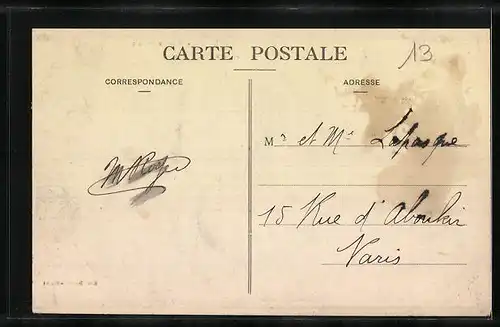 CARTE POSTALE
13
CORRESPONDANCE
ADRESSE
Mr et Me Lapasque
15 Rue d'Aboukir
Paris